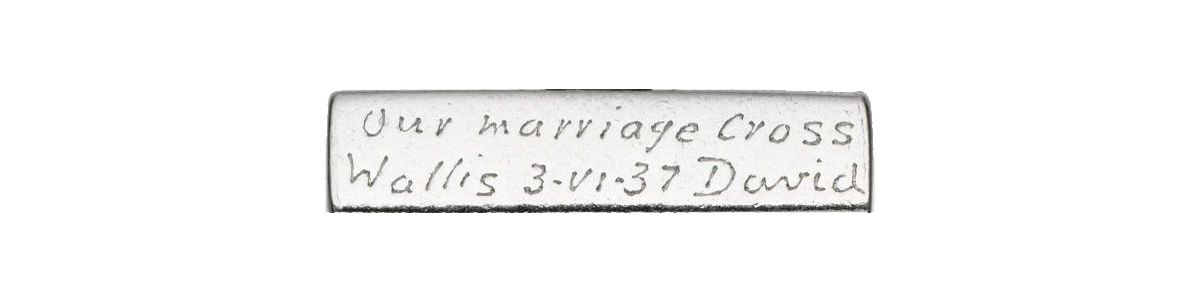 Our marriage Cross
Wallis 3-VI-37 David